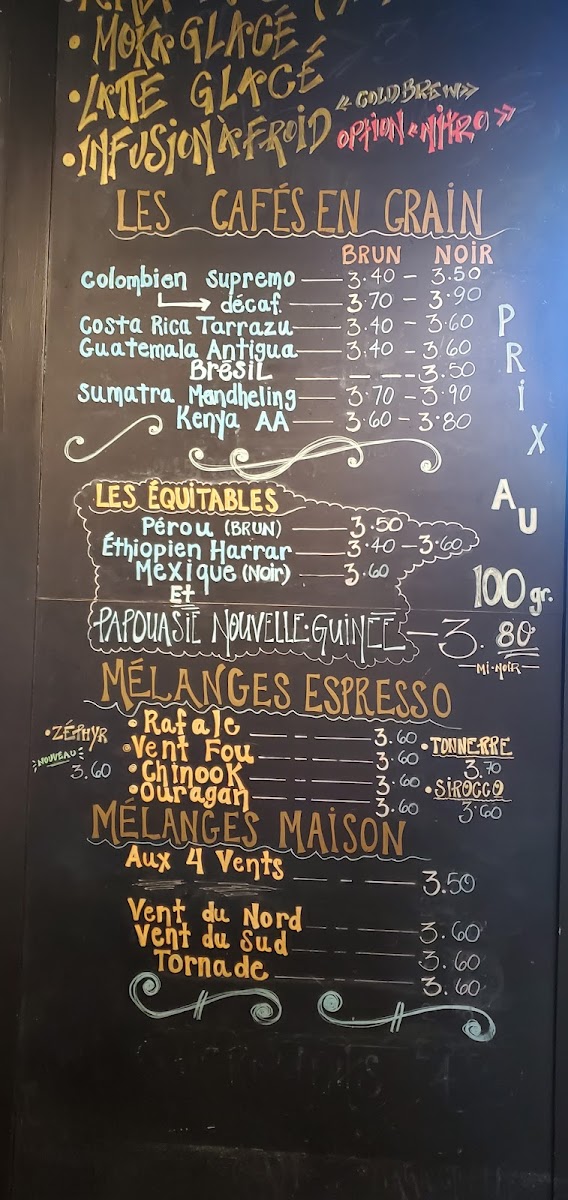 • MOKA GLACÉ
• LATTE GLACÉ
• INFUSION À FROID « COLD BREW »
OPTION « NITRO »
LES CAFÉS EN GRAIN
BRUN NOIR
Colombien Supremo — 3.40 – 3.50
décaf. — 3.70 – 3.90
Costa Rica Tarrazu — 3.40 – 3.60
Guatemala Antigua — 3.40 – 3.60
Brésil — — – 3.50
Sumatra Mandheling — 3.70 – 3.90
Kenya AA — 3.60 – 3.80
PRIX AU 100 gr.
LES ÉQUITABLES
Pérou (BRUN) — 3.50
Éthiopien Harrar — 3.40 – 3.60
Mexique (Noir) — 3.60
Et
PAPOUASIE NOUVELLE-GUINÉE — 3.80
MI-NOIR
MÉLANGES ESPRESSO
• Rafale — 3.60
• Vent Fou — 3.60
• Chinook — 3.60
• Ouragan — 3.60
• ZÉPHYR
NOUVEAU
3.60
• TONNERRE
3.70
• SIROCCO
3.60
MÉLANGES MAISON
Aux 4 Vents — 3.50
Vent du Nord — 3.60
Vent du Sud — 3.60
Tornade — 3.60